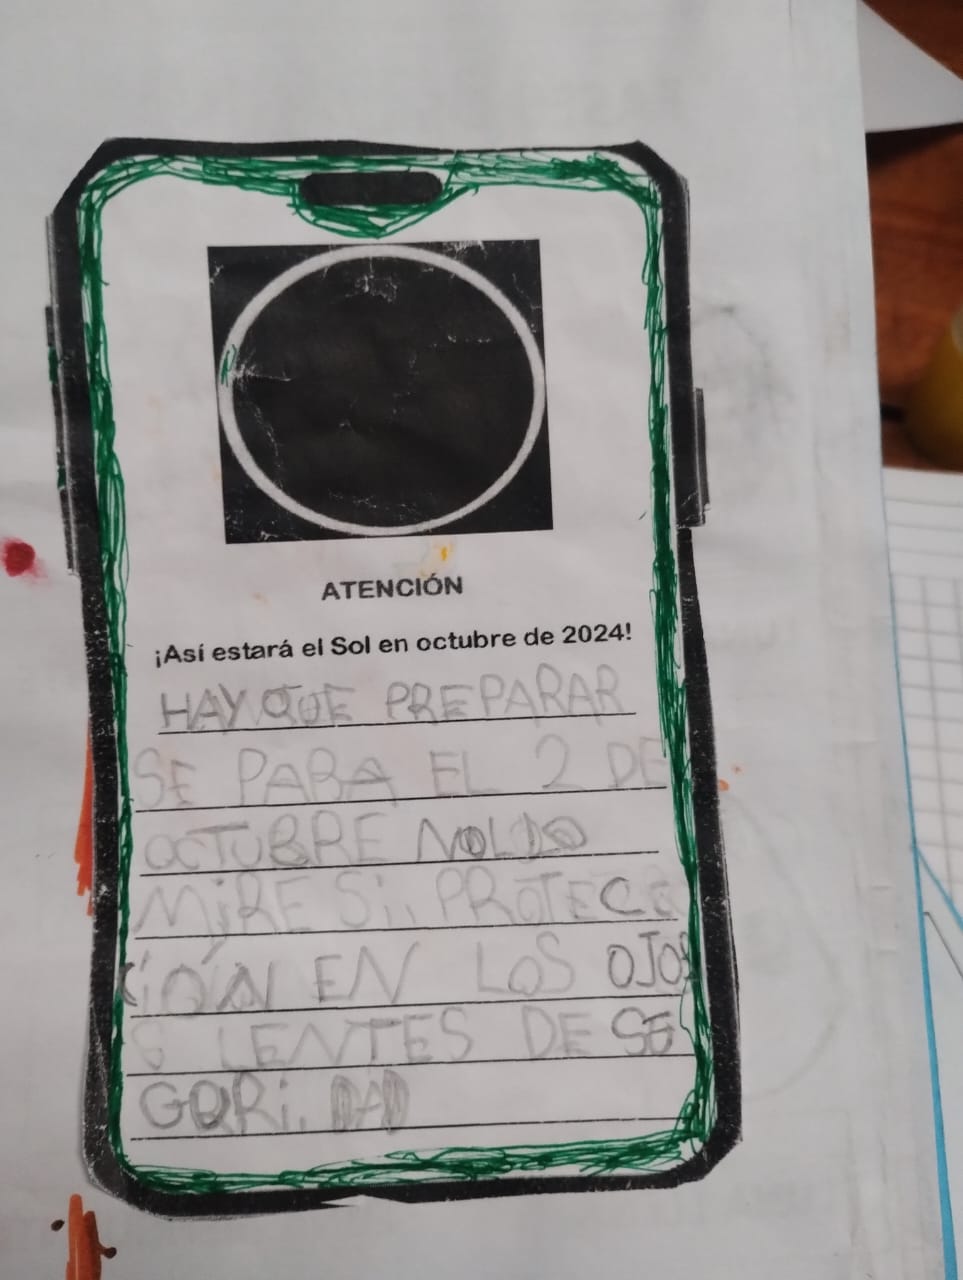 ATENCIÓN
¡Así estará el Sol en octubre de 2024!
HAY QUE PREPARAR
SE PARA EL 2 DE
OCTUBRE NO LO
MiRE Si, PROTEC
CiÓN EN LOS OJOS
LENTES DE SE
GURi.DAD